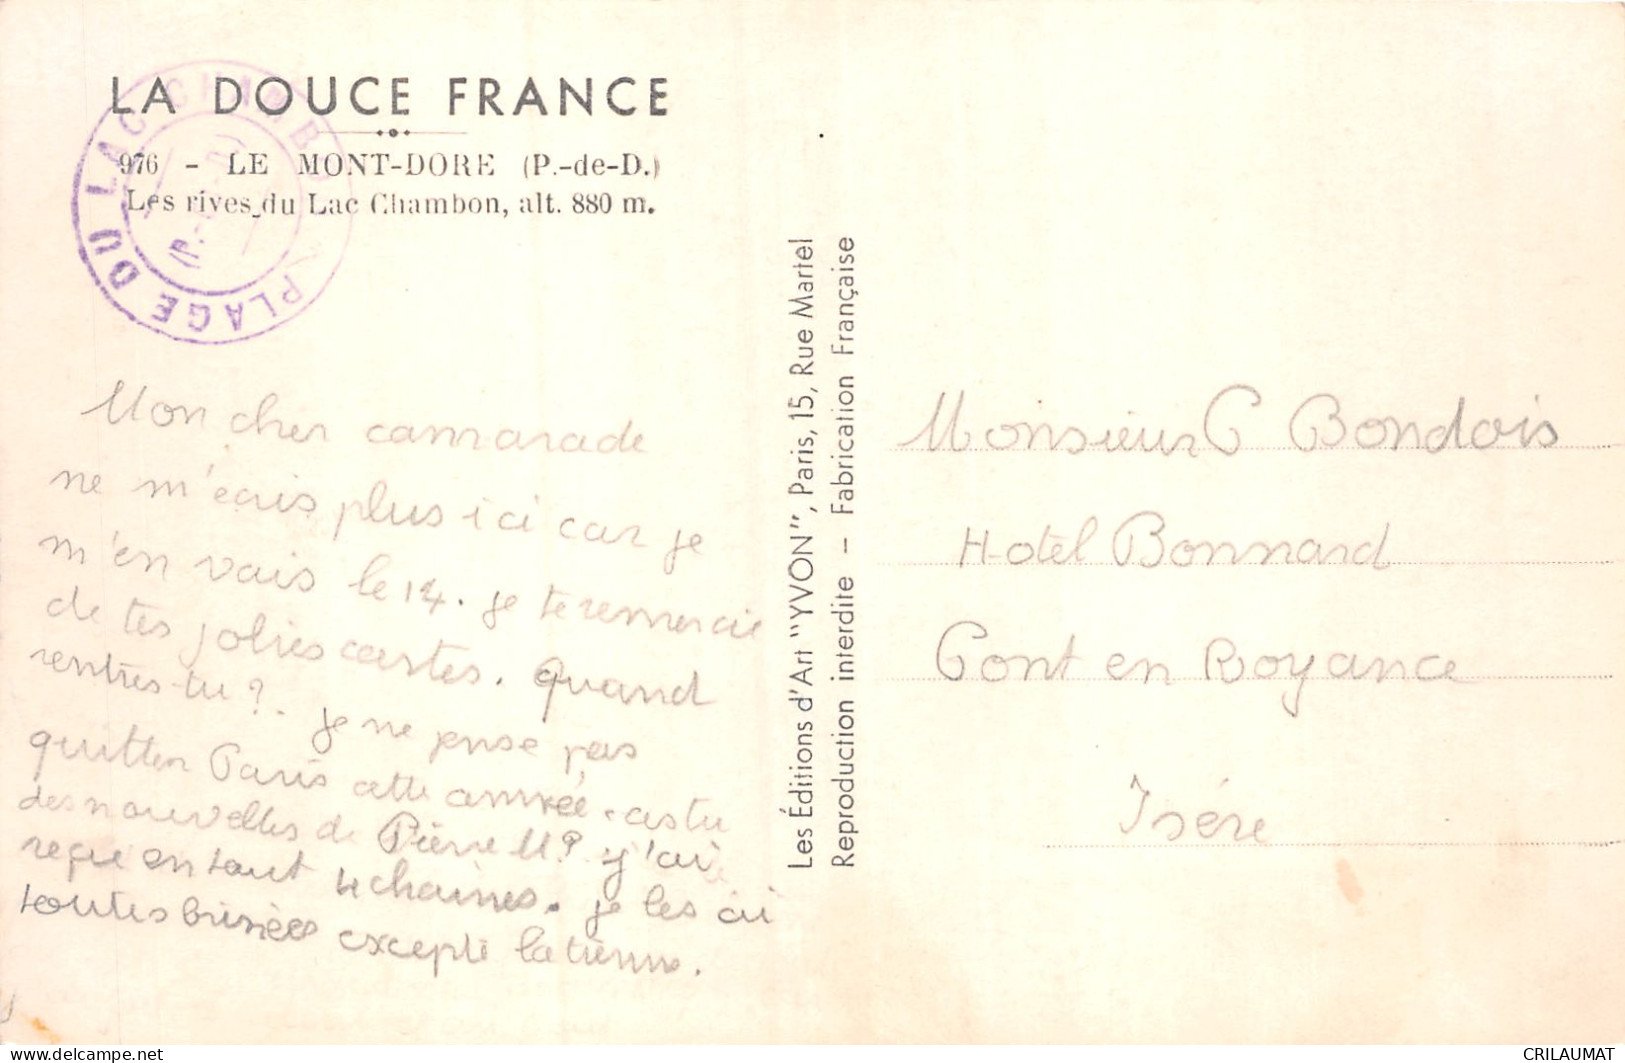 LA DOUCE FRANCE
976 - LE MONT-DORE (P.-de-D.)
Les rives du Lac Chambon, alt. 880 m.
PLAGE DU LAC CHAMBON
Mon cher camarade
ne m'écris plus ici car je
m'en vais le 14. je te remercie
de tes jolies cartes. Quand
rentres-tu ?. je ne pense pas
quitter Paris cette année. as tu
des nouvelles de Pierre M ? j'ai
reçue en tout 4 chaines. je les ai
toutes brisées excepté la tienne.
Les Éditions d'Art "YVON", Paris, 15, Rue Martel
Reproduction interdite - Fabrication Française
Monsieur P Bondois
Hotel Bonnard
Pont en Royance
Isére
delcampe.net
CRILAUMAT